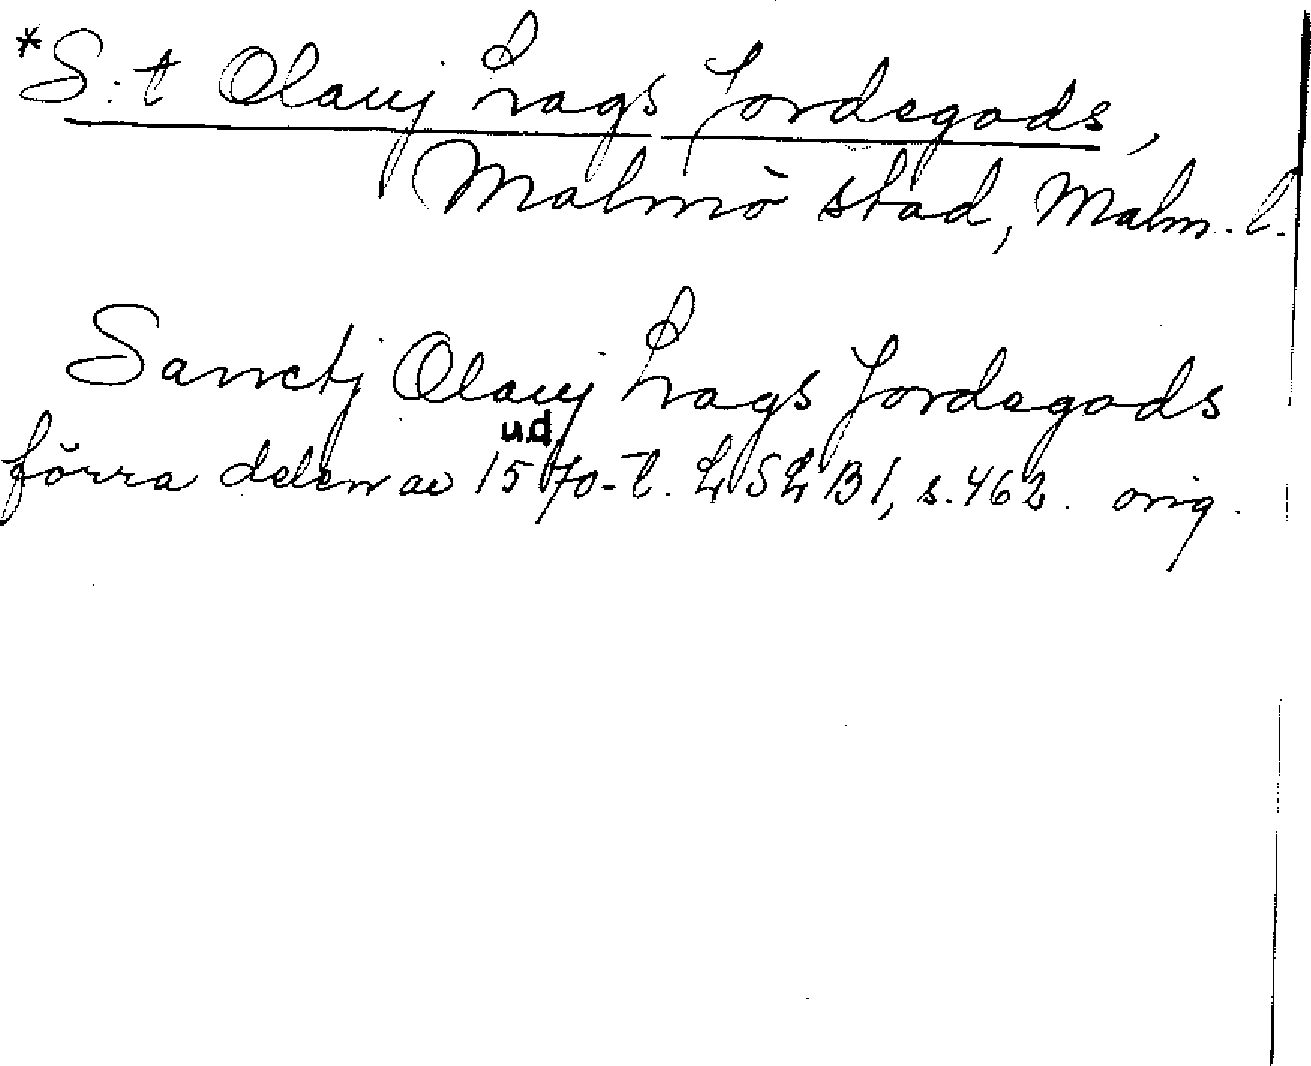 *S:t Olauj Lags Jordegods,
Malmö stad, Malm. l.
Sanctj Olauj Lags Jordegods
u.d.
förra delen av 1570-t. LSLB1, s. 462. orig.